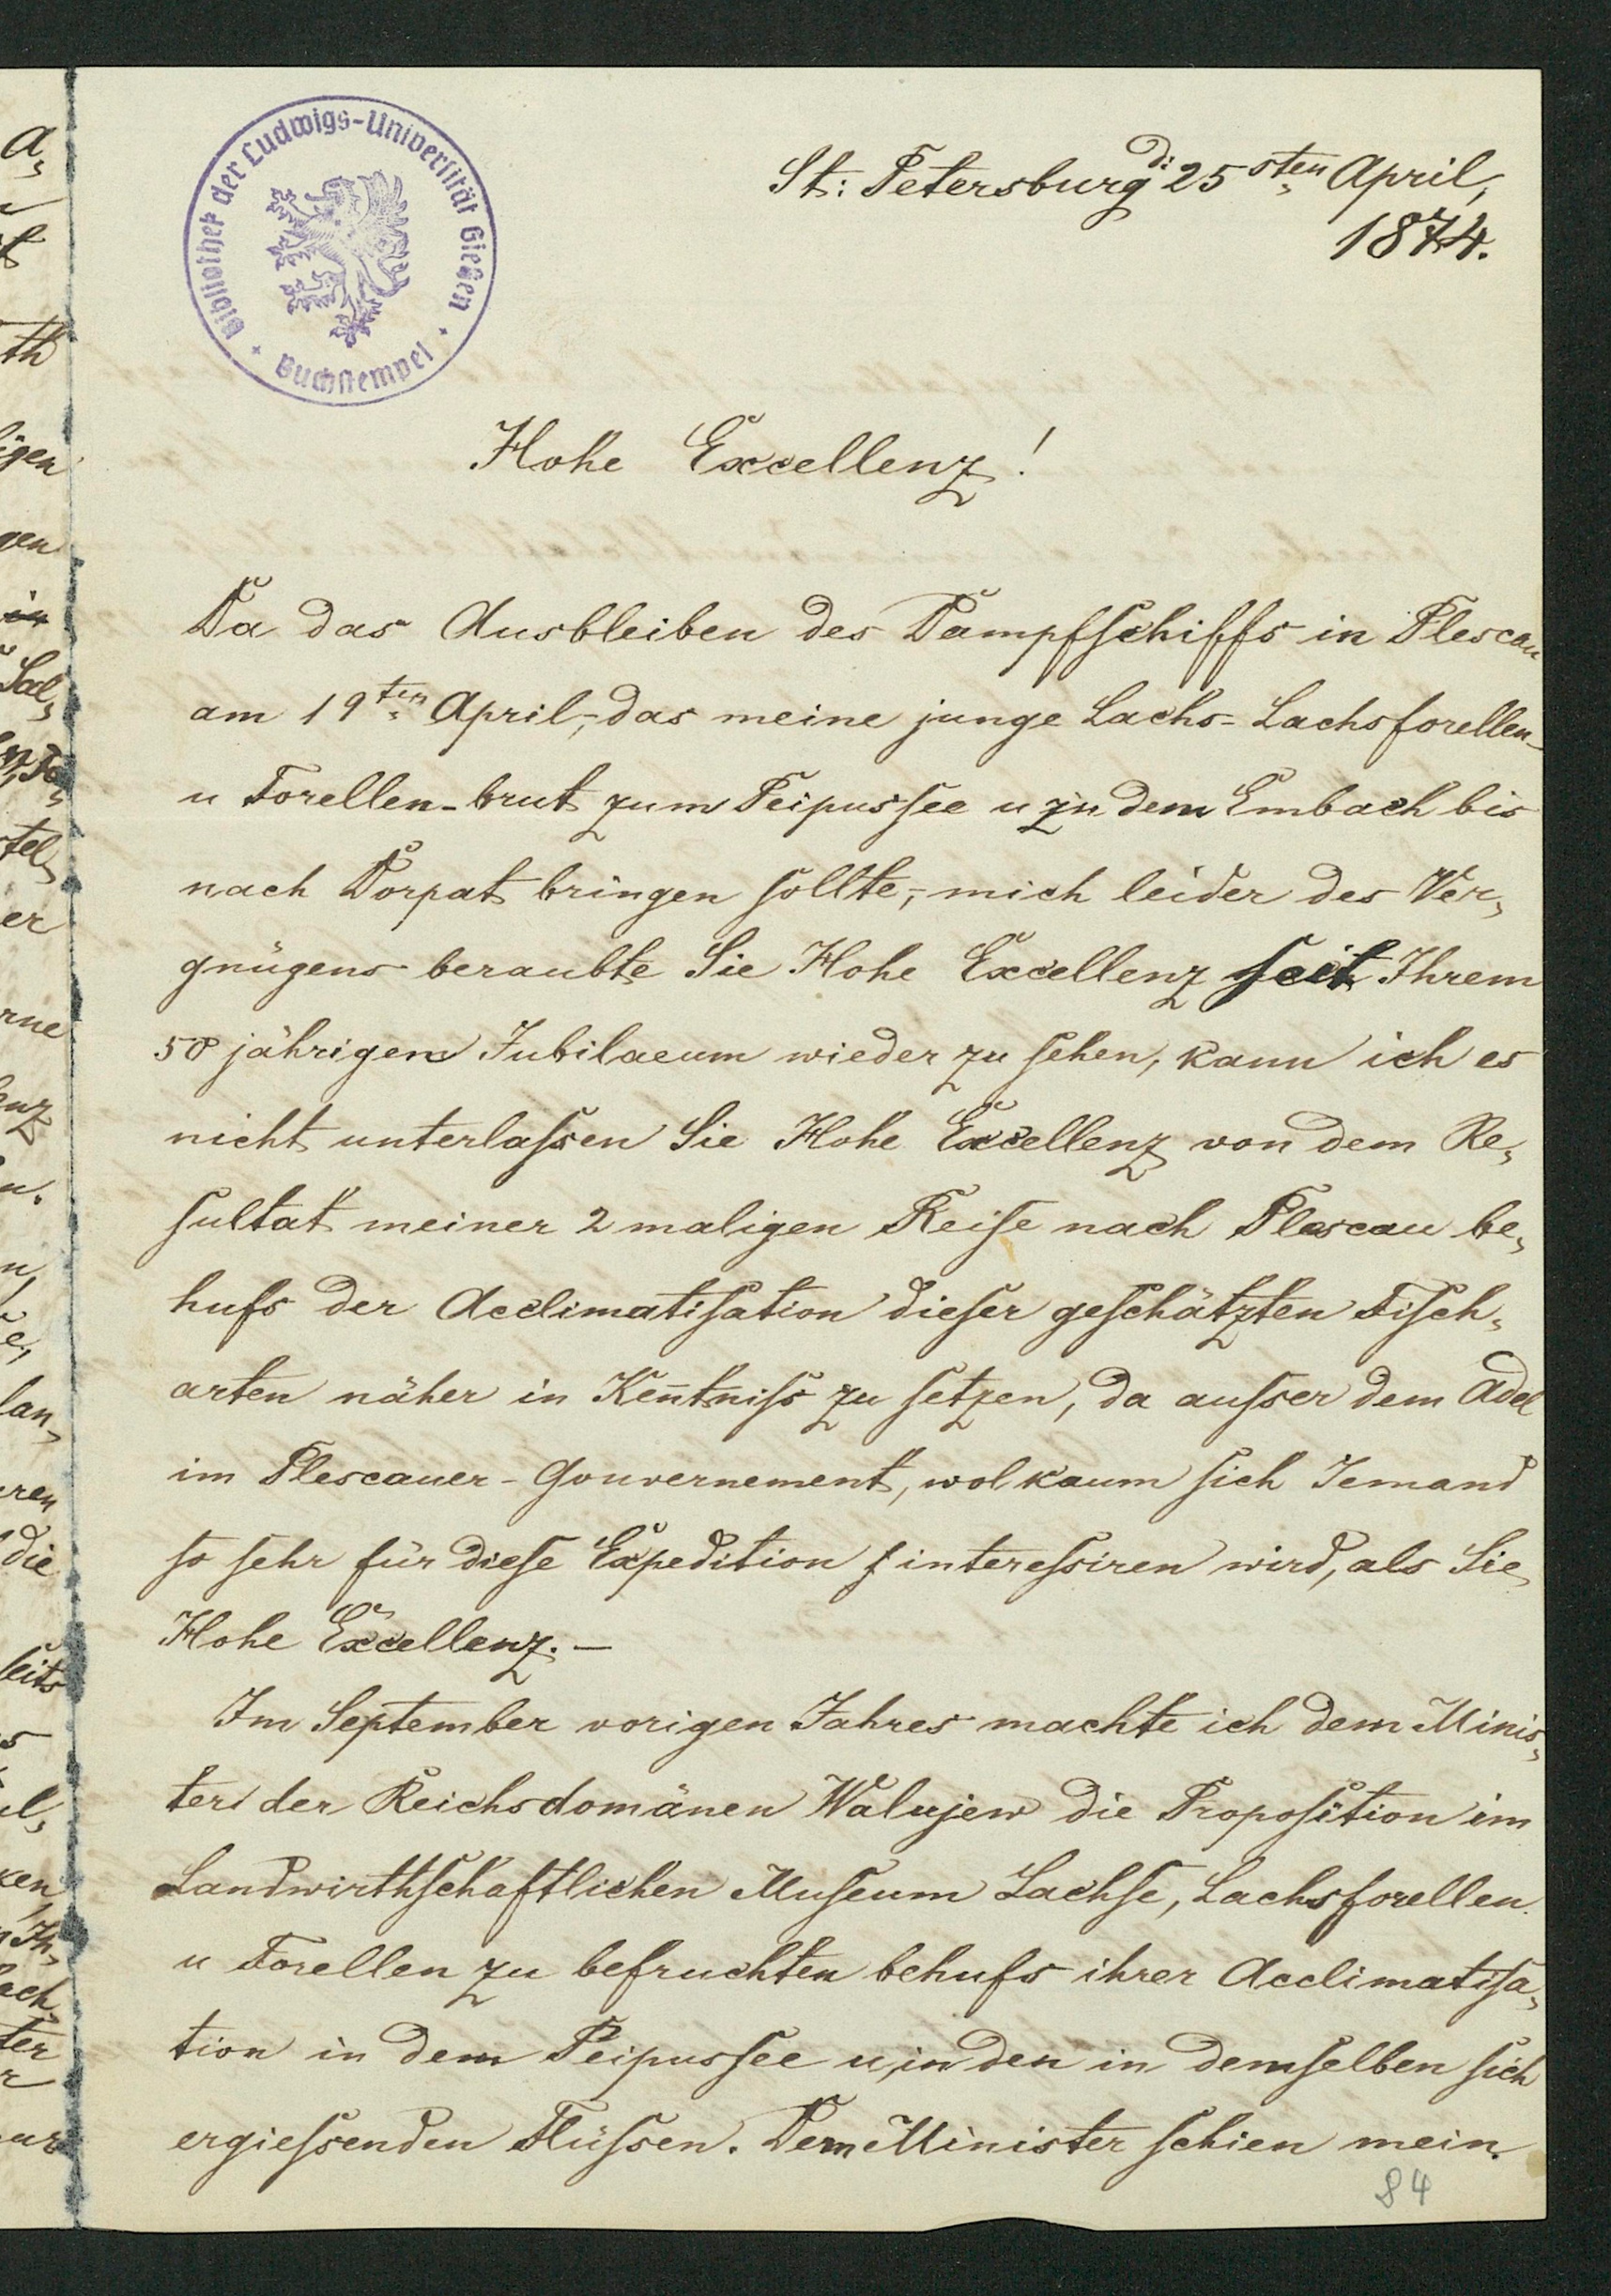 Bibliothek der Ludwigs-Universität Gießen
Buchstempel
St: Petersburg d: 25sten April,
1874.
Hohe Excellenz!
Da das Ausbleiben des Dampfschiffs in Plescau
am 19ten April,-das meine junge Lachs- Lachsforellen-
u Forellen-brut zum Peipussee u in dem Embach bis
nach Dorpat bringen sollte,-mich leider des Ver-
gnügens beraubte Sie Hohe Excellenz seit Ihrem
50 jährigem Jubilaeum wieder zu sehen, kann ich es
nicht unterlassen Sie Hohe Excellenz von dem Re-
sultat meiner 2 maligen Reise nach Plescau be-
hufs der Acclimatisation dieser geschätzten Fisch-
arten näher in Kentniss zu setzen, da ausser dem Adel
im Plescauer-Gouvernement, wol kaum sich Jemand
so sehr für diese Expedition interessiren wird, als Sie
Hohe Excellenz.-
Im September vorigen Jahres machte ich dem Minis-
ter der Reichsdomänen Walujew die Proposition im
Landwirthschaftlichen Museum Lachse, Lachsforellen
u Forellen zu befruchten behufs ihrer Acclimatisa-
tion in dem Peipussee u in den in demselben sich
ergiessenden Flüssen. Dem Minister schien mein
84
a-
t
th
igen
gen
in
Sal-
tel-
er
rne
enz
n.
n
e,
lan-
ren
die
seits
s
el-
ken
ach
ter
r
ur